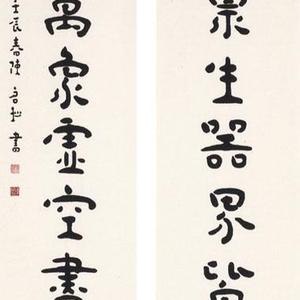 衆生器界皆
萬象虛空盡
壬辰春陳書